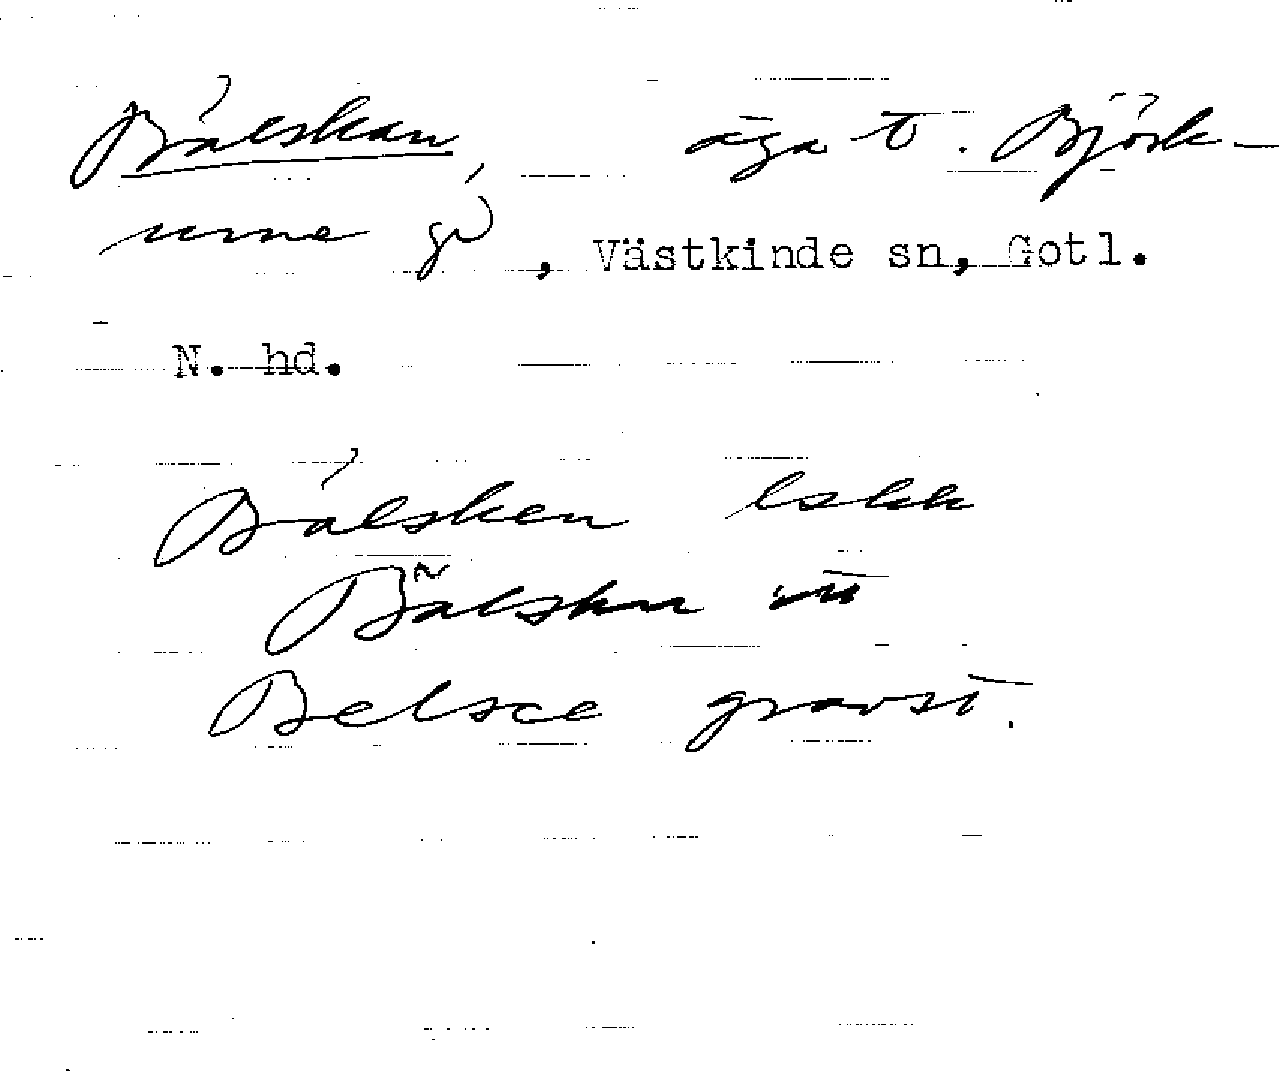 Bålskan, äga t. Björk-
ume gd, Västkinde sn, Gotl.
N. hd.
Bålsken lskk
Bålsku
Belsce gravst.